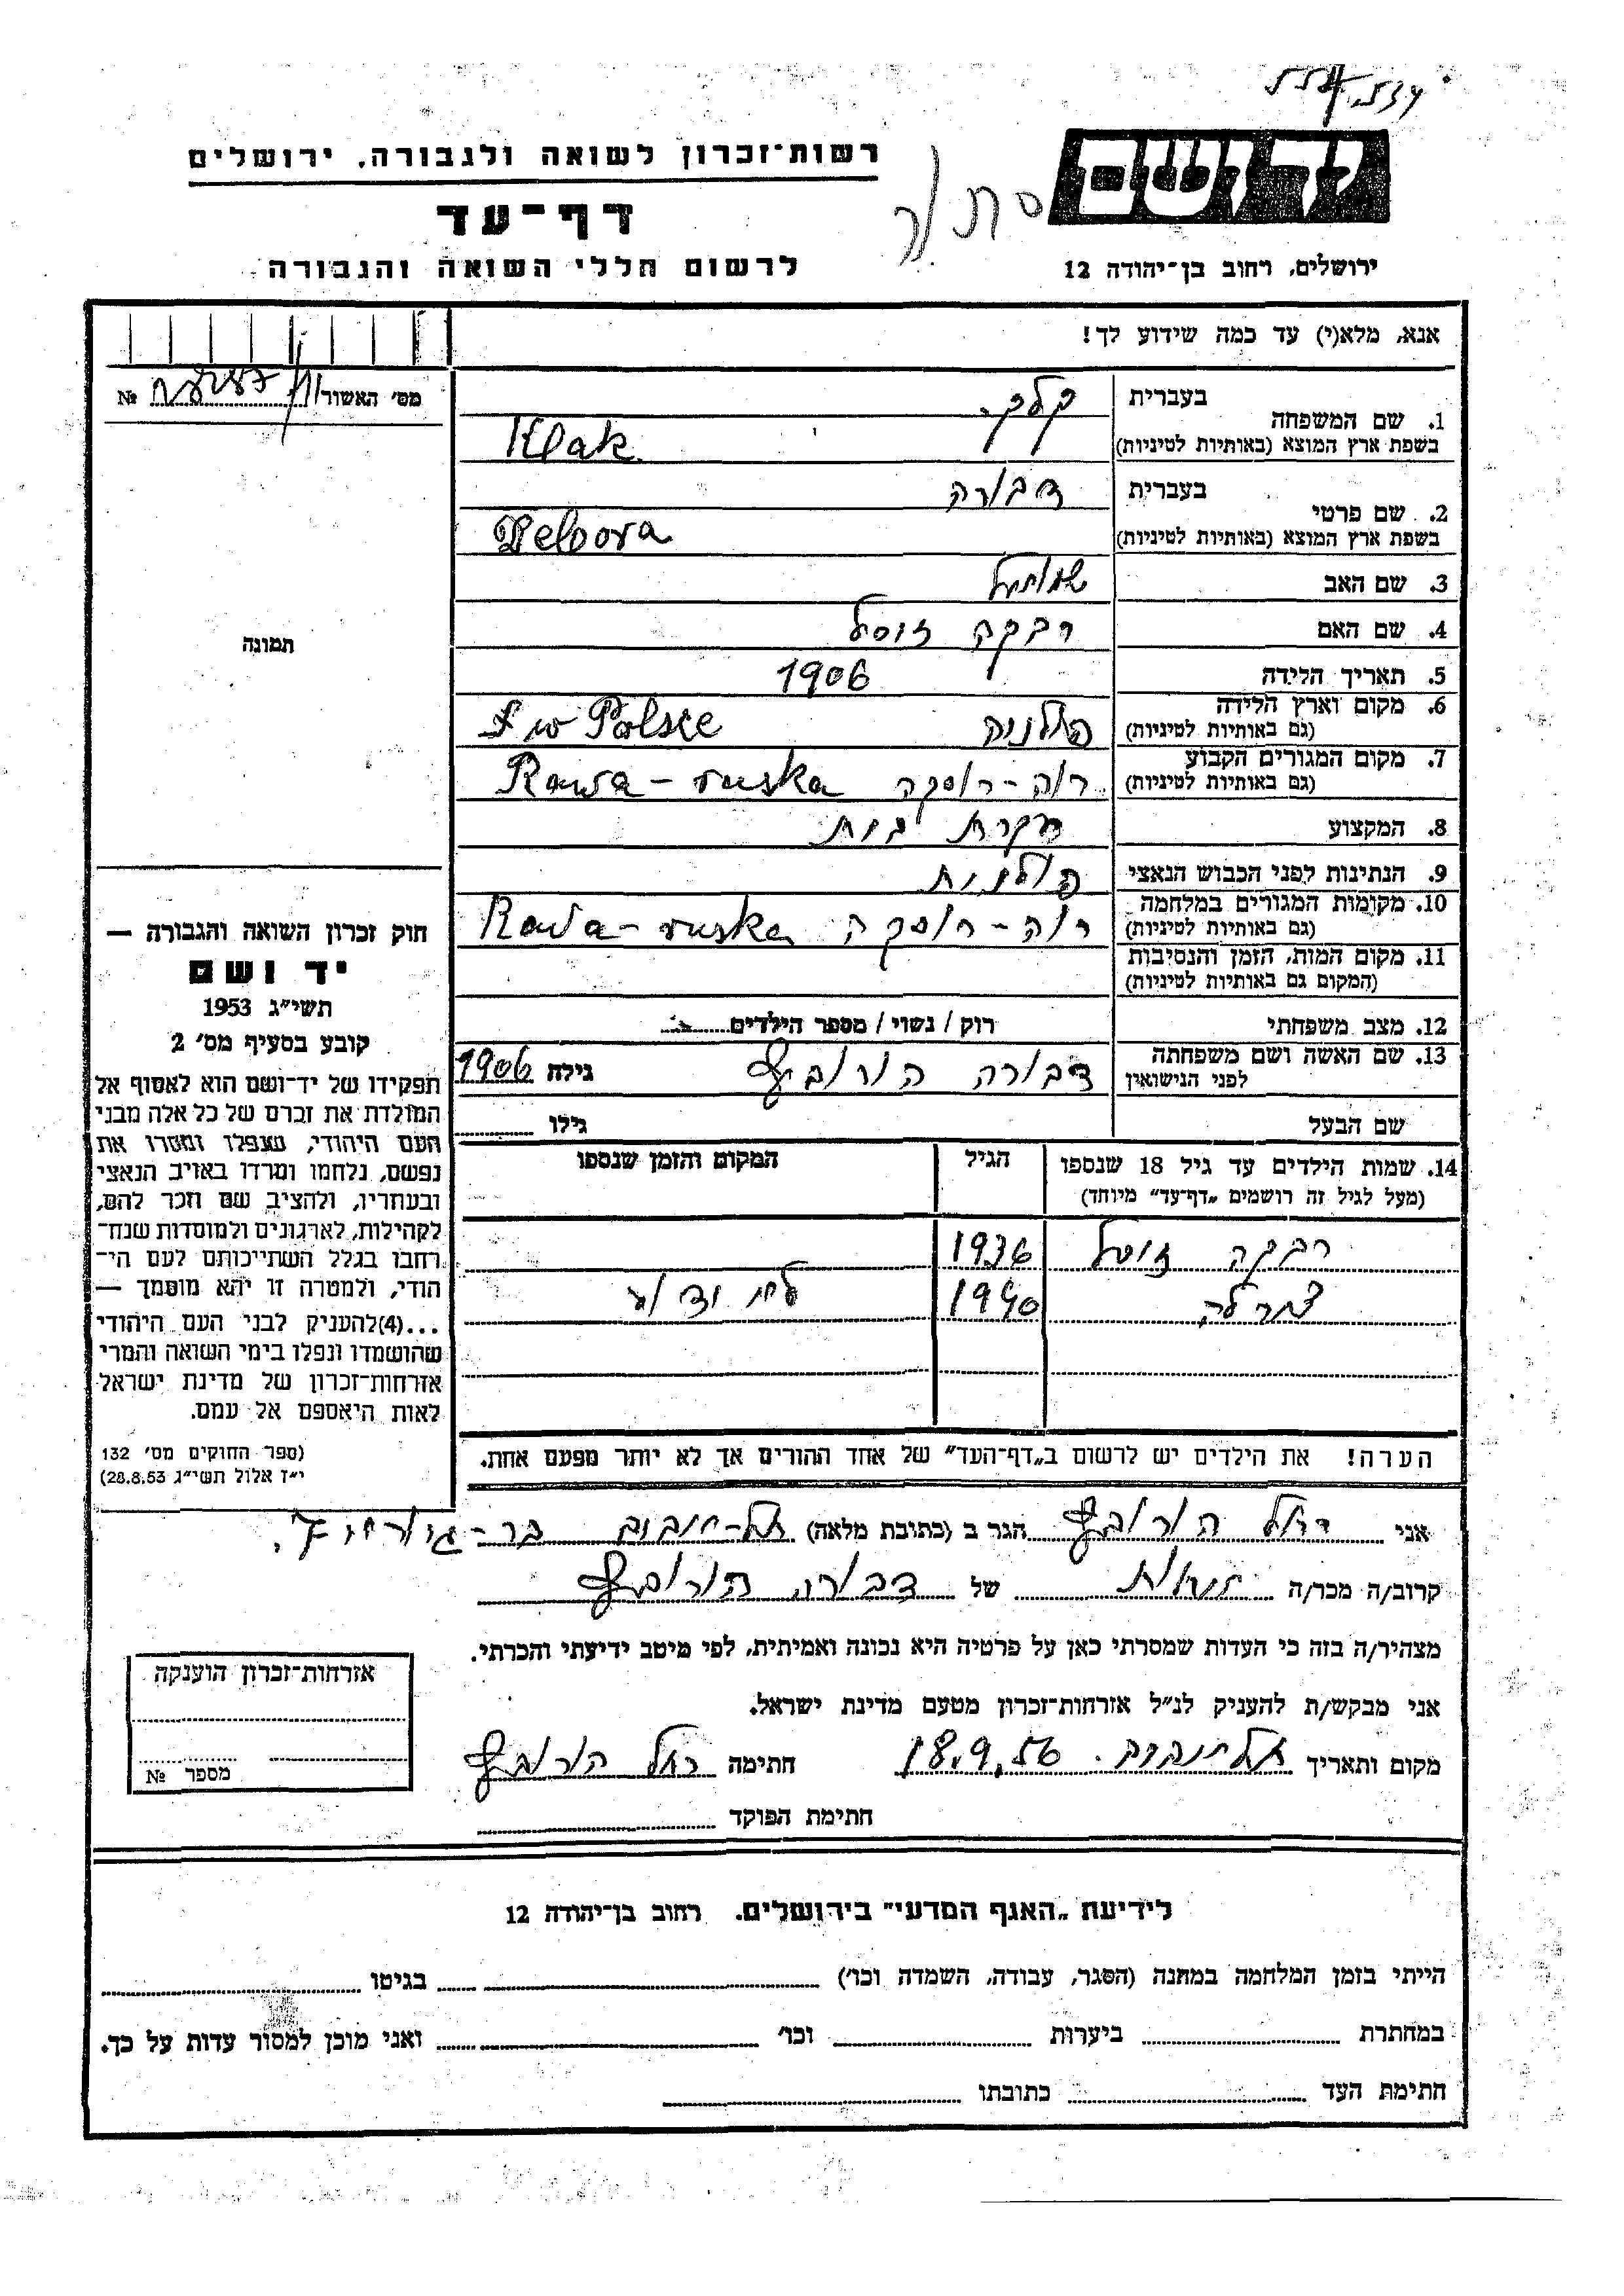 רשות־זכרון לשואה ולגבורה, ירושלים
דף־עד
לרשום חללי השואה והגבורה
יד ושם
ירושלים, רחוב בן־יהודה 12
אנא, מלא(י) עד כמה שידוע לך!
מס׳ האשור № 
תמונה
בעברית קלק
1. שם המשפחה
בשפת ארץ המוצא (באותיות לטיניות) Klak
בעברית דבורה
2. שם פרטי
בשפת ארץ המוצא (באותיות לטיניות) Debora
3. שם האב שמואל
4. שם האם רבקה זוסל
5. תאריך הלידה 1906
6. מקום וארץ הלידה
(גם באותיות לטיניות) פולניה w Polsce
7. מקום המגורים הקבוע
(גם באותיות לטיניות) רוה-רוסקה Rawa-ruska
8. המקצוע עקרת בית
9. הנתינות לפני הכבוש הנאצי פולנית
10. מקומות המגורים במלחמה
(גם באותיות לטיניות) רוה-רוסקה Rawa-ruska
11. מקום המות, הזמן והנסיבות
(המקום גם באותיות לטיניות)
12. מצב משפחתי רוק / נשוי / מספר הילדים
13. שם האשה ושם משפחתה
לפני הנישואין דבורה הורוביץ גילה 1906
שם הבעל גילו
14. שמות הילדים עד גיל 18 שנספו הגיל המקום והזמן שנספו
(מעל לגיל זה רושמים „דף־עד” מיוחד)
רבקה זוסל 1936
1940 לא ידוע
הערה! את הילדים יש לרשום ב„דף־העד” של אחד ההורים אך לא יותר מפעם אחת.
חוק זכרון השואה והגבורה —
יד ושם
תשי״ג 1953
קובע בסעיף מס׳ 2
תפקידו של יד־ושם הוא לאסוף אל
המולדת את זכרם של כל אלה מבני
העם היהודי, שנפלו ומסרו את
נפשם, נלחמו ומרדו באויב הנאצי
ובעוזריו, ולהציב שם וזכר להם,
לקהילות, לארגונים ולמוסדות שנח־
רבו בגלל השתייכותם לעם הי־
הודי, ולמטרה זו יהא מוסמך —
...(4)להעניק לבני העם היהודי
שהושמדו ונפלו בימי השואה והמרי
אזרחות־זכרון של מדינת ישראל
לאות היאספם אל עמם.
(ספר החוקים מס׳ 132
י״ז אלול תשי״ג 28.8.53)
אני רחל הורוביץ הגר ב (כתובת מלאה) תל-אביב בר-גיורא 7.
קרוב/ה מכר/ה של דבורה הורוביץ
מצהיר/ה בזה כי העדות שמסרתי כאן על פרטיה היא נכונה ואמיתית, לפי מיטב ידיעתי והכרתי.
אני מבקש/ת להעניק לנ״ל אזרחות־זכרון מטעם מדינת ישראל.
מקום ותאריך תל אביב 18.9.56 חתימה רחל הורוביץ
חתימת הפוקד
אזרחות־זכרון הוענקה
מספר №
לידיעת „האגף המדעי” בירושלים, רחוב בן־יהודה 12
הייתי בזמן המלחמה במחנה (הסגר, עבודה, השמדה וכו׳) בגיטו
במחתרת ביערות וכו׳ ואני מוכן למסור עדות על כך.
חתימת העד כתובתו